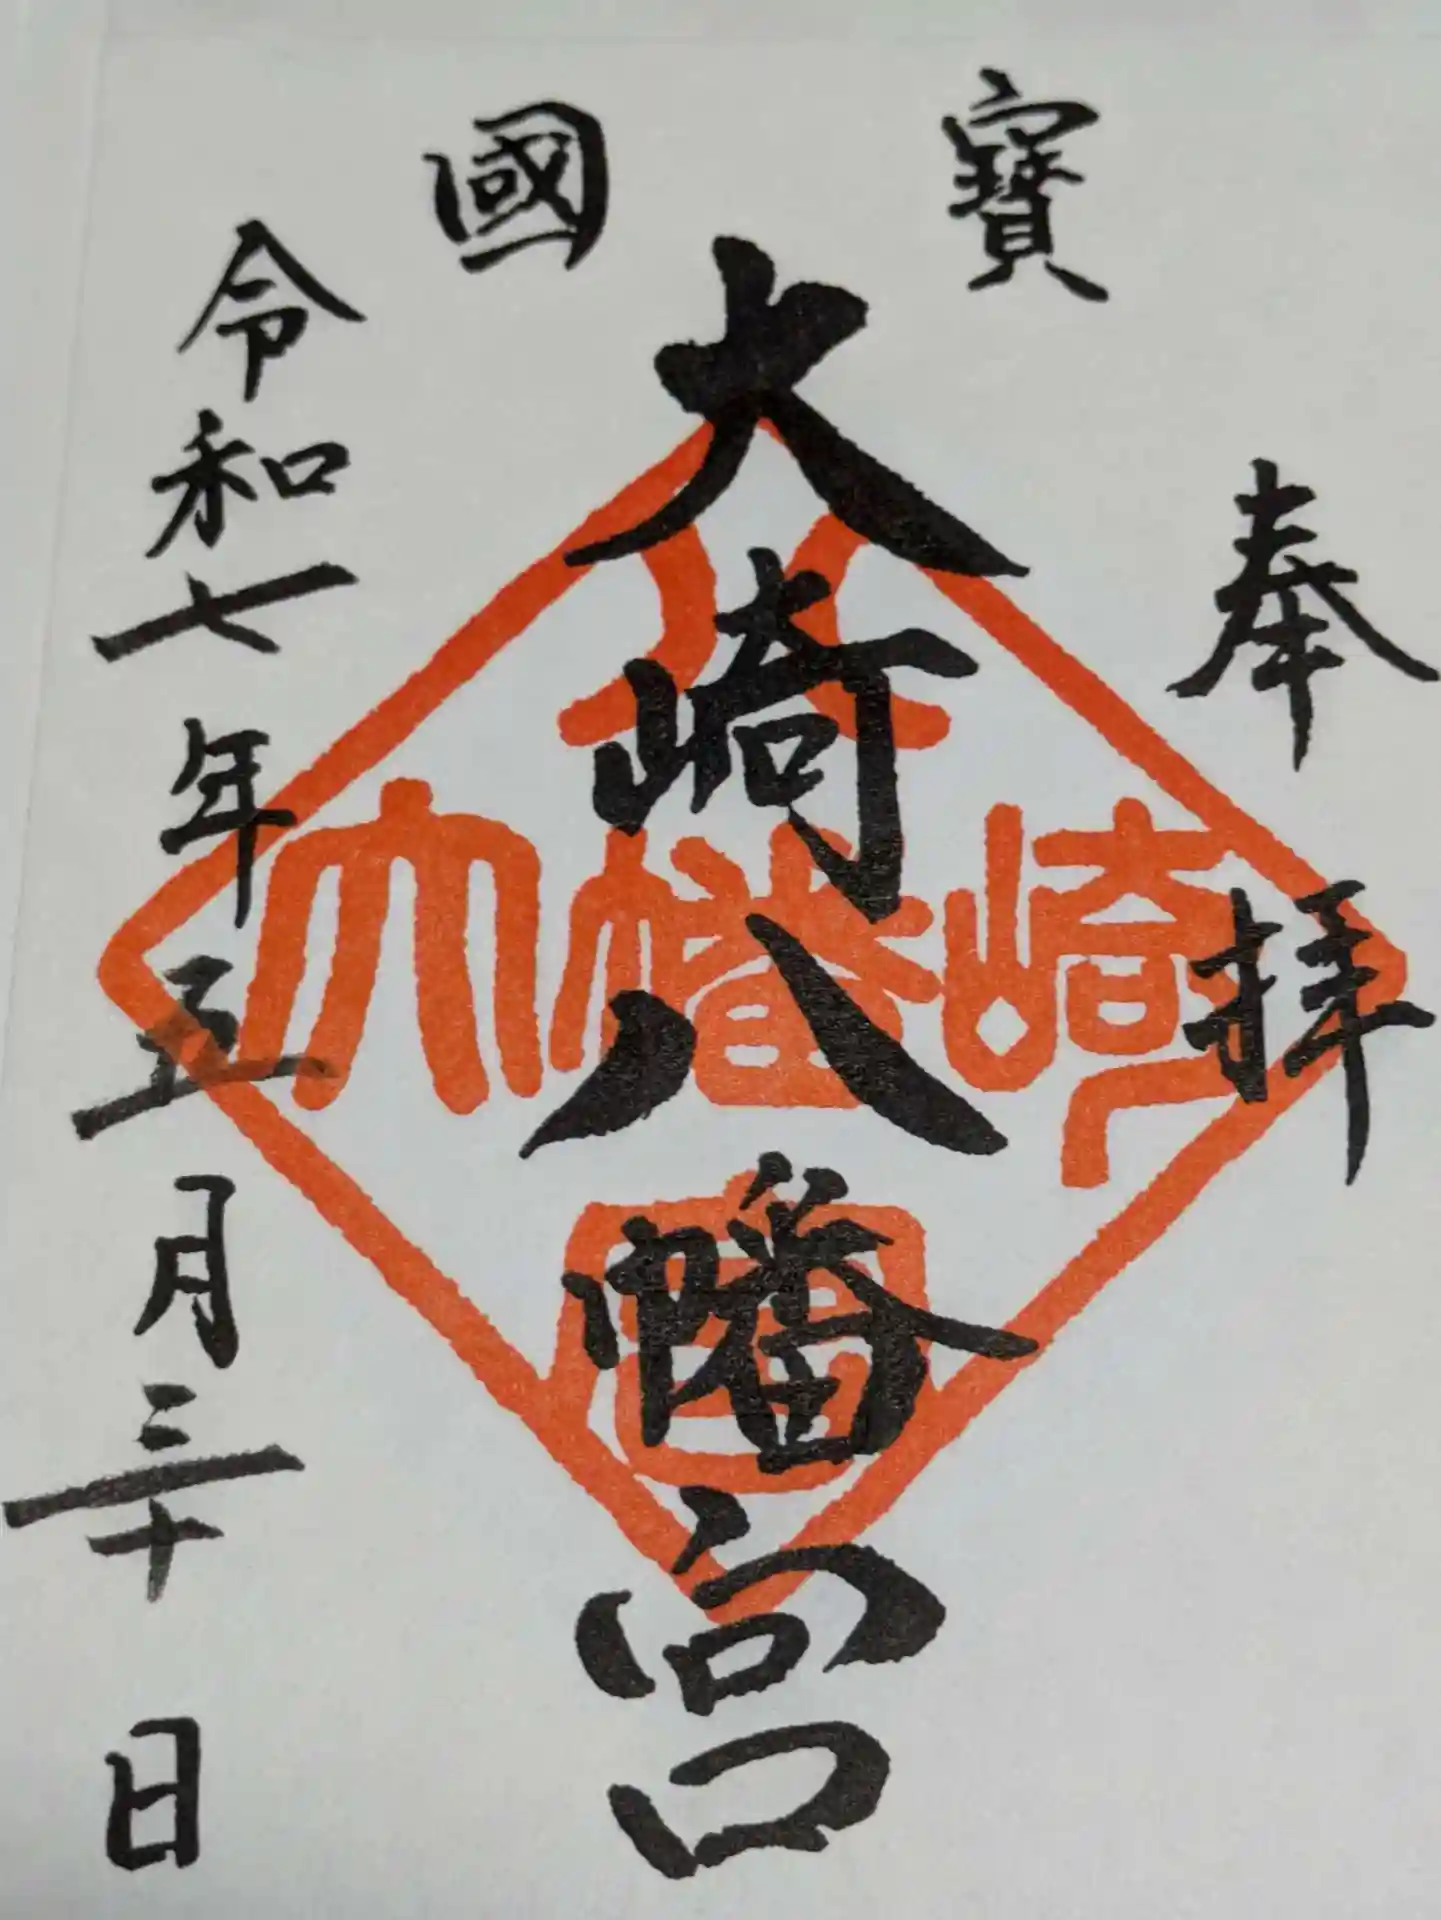 奉拝
寶
國
大崎八幡宮
令和七年五月三十日
八
大幡崎
宮